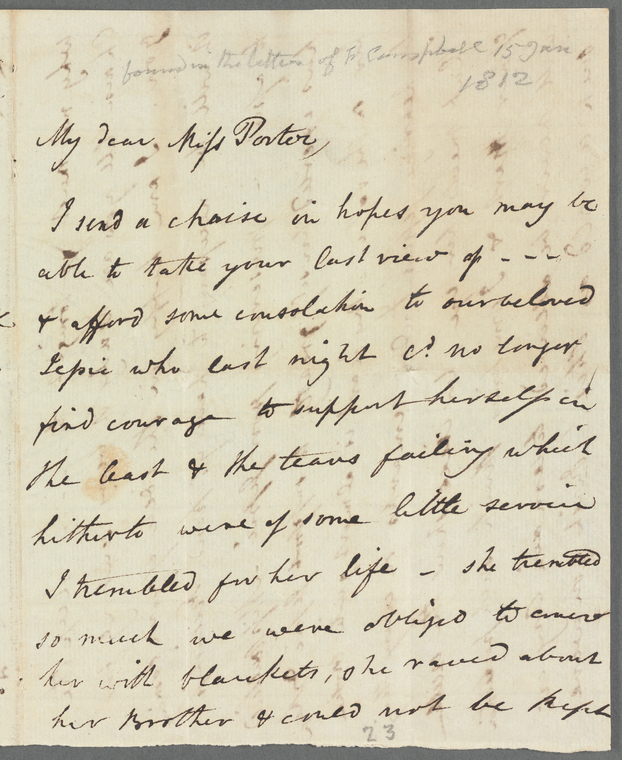 found in the letters of F. Campbell 15 Jan
1812
My dear Miss Porter,
I send a chaise in hopes you may be
able to take your last view of - - -
& afford some consolation to our beloved
who last night cd. no longer
find courage to support herself in
the least & the tears failing which
hitherto were of some little service
I trembled for her life - she trembled
so much we were obliged to cover
her with blankets, she raved about
her Brother & could not be kept
23